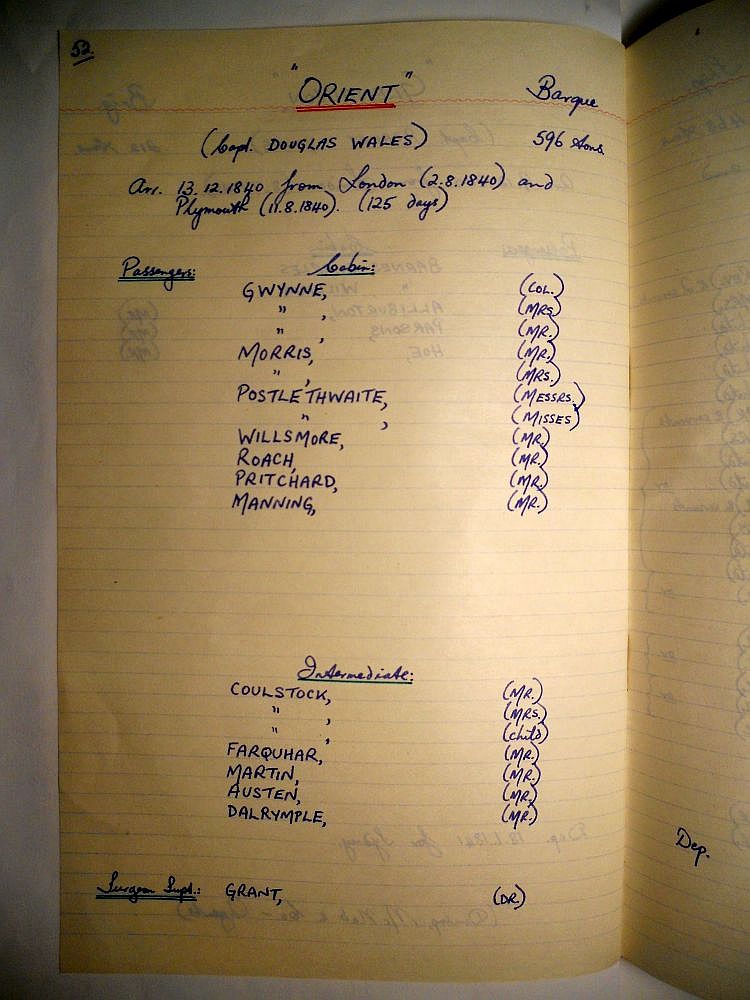 52.
"ORIENT" Barque
(Capt. DOUGLAS WALES) 596 tons
Arr. 13.12.1840 from London (2.8.1840) and
Plymouth (11.8.1840). (125 days)
Passengers: Cabin:
GWYNNE, (COL.)
" , (MRS)
" , (MR.)
MORRIS, (MR.)
" , (MRS.)
POSTLETHWAITE, (MESSRS.)
" , (MISSES)
WILLSMORE, (MR.)
ROACH, (MR.)
PRITCHARD, (MR.)
MANNING, (MR.)
Intermediate:
COULSTOCK, (MR.)
" , (MRS.)
" , (child)
FARQUHAR, (MR.)
MARTIN, (MR.)
AUSTEN, (MR.)
DALRYMPLE, (MR.)
Surgeon Supt.: GRANT, (DR.)
Dep.